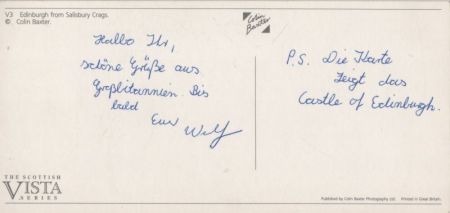 V3 Edinburgh from Salisbury Crags.
© Colin Baxter.
Colin
Baxter
Hallo Ihr,
schöne Grüße aus
Großbritannien. Bis
bald
Euer Wolf
P.S. Die Karte
zeigt das
Castle of Edinburgh.
THE SCOTTISH
VISTA
SERIES
Published by Colin Baxter Photography Ltd. Printed in Great Britain.